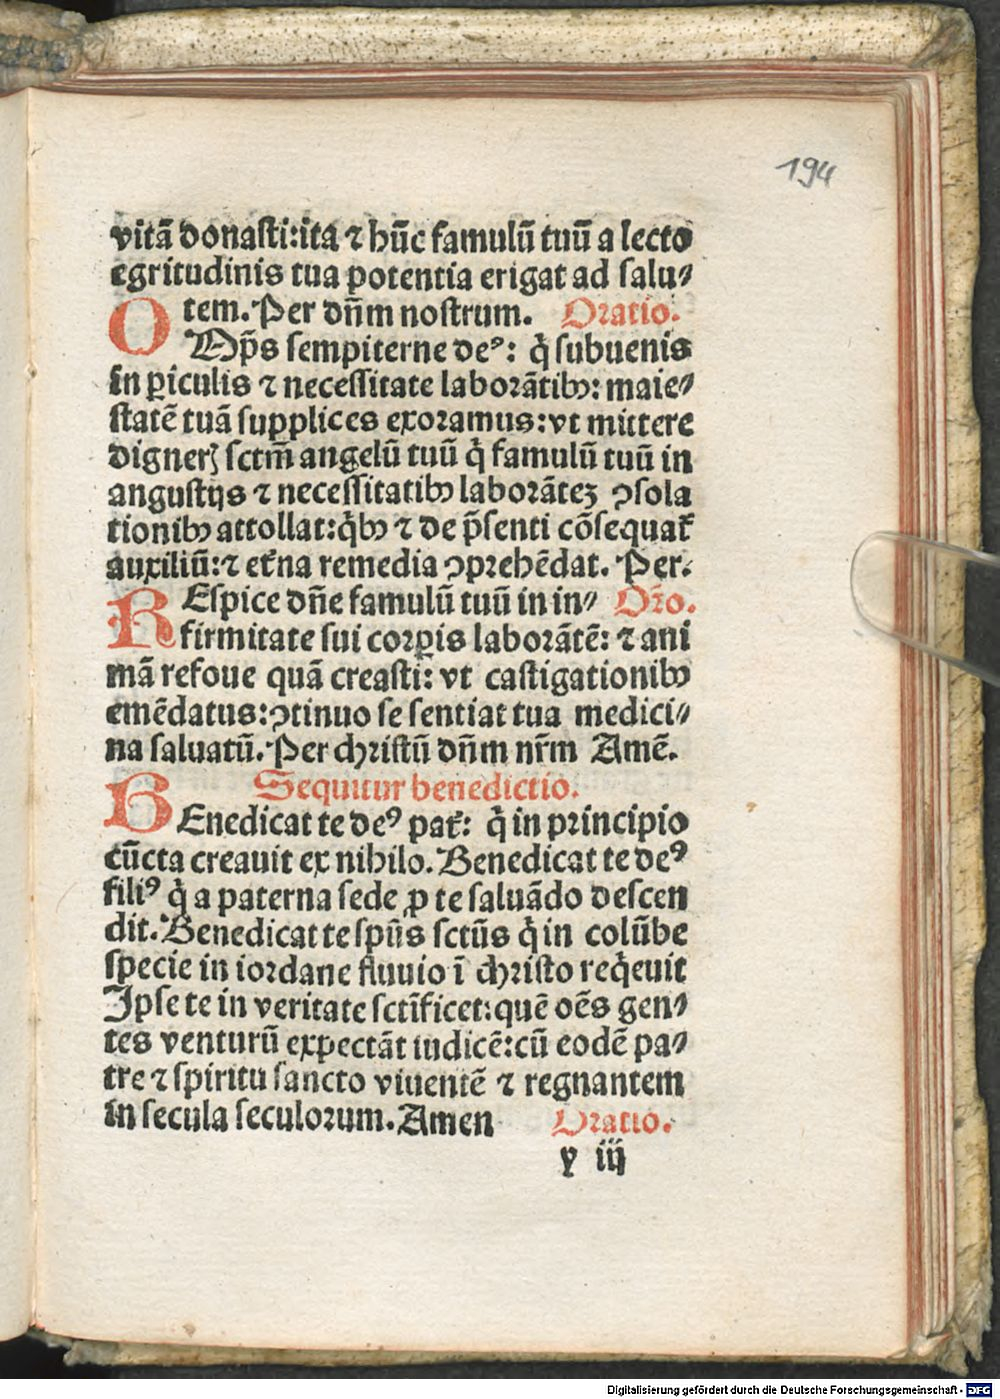 194
vitã donasti:ita ⁊ hũc famulũ tuũ a lecto
egritudinis tua potentia erigat ad salu⸗
tem. Per dñm nostrum. Oratio.
OMp̃s sempiterne deꝰ: q̇ subuenis
in ꝑiculis ⁊ necessitate laborãtibꝫ: maie⸗
statẽ tuã supplices exoramus:vt mittere
digneꝝ sctm̃ angelũ tuũ q̇ famulũ tuũ in
angustijs ⁊ necessitatibꝫ laborãteꝫ ꝯsola
tionibꝫ attollat:q̇bꝫ ⁊ de p̃senti cõsequat᷑
auxiliũ:⁊ et᷑na remedia ꝯprehẽdat. Per.
REspice dñe famulũ tuũ in in⸗ Oro.
firmitate sui corꝑis laborãtẽ: ⁊ ani
mã refoue quã creasti: vt castigationibꝫ
emẽdatus:ꝯtinuo se sentiat tua medici⸗
na saluatũ. Per christũ dñm nr̃m Amẽ.
Sequitur benedictio.
BEnedicat te deꝰ pat᷑: q̇ in principio
cũcta creauit ex nihilo. Benedicat te deꝰ
filiꝰ q̇ a paterna sede ꝓ te saluãdo descen
dit. Benedicat te spũs sctũs q̇ in colũbe
specie in iordane fluuio ĩ christo req̇euit
Ipse te in veritate sctĩficet:quẽ oẽs gen⸗
tes venturũ expectãt iudicẽ:cũ eodẽ pa⸗
tre ⁊ spiritu sancto viuentẽ ⁊ regnantem
in secula seculorum. Amen Oratio.
y iij
Digitalisierung gefördert durch die Deutsche Forschungsgemeinschaft - DFG